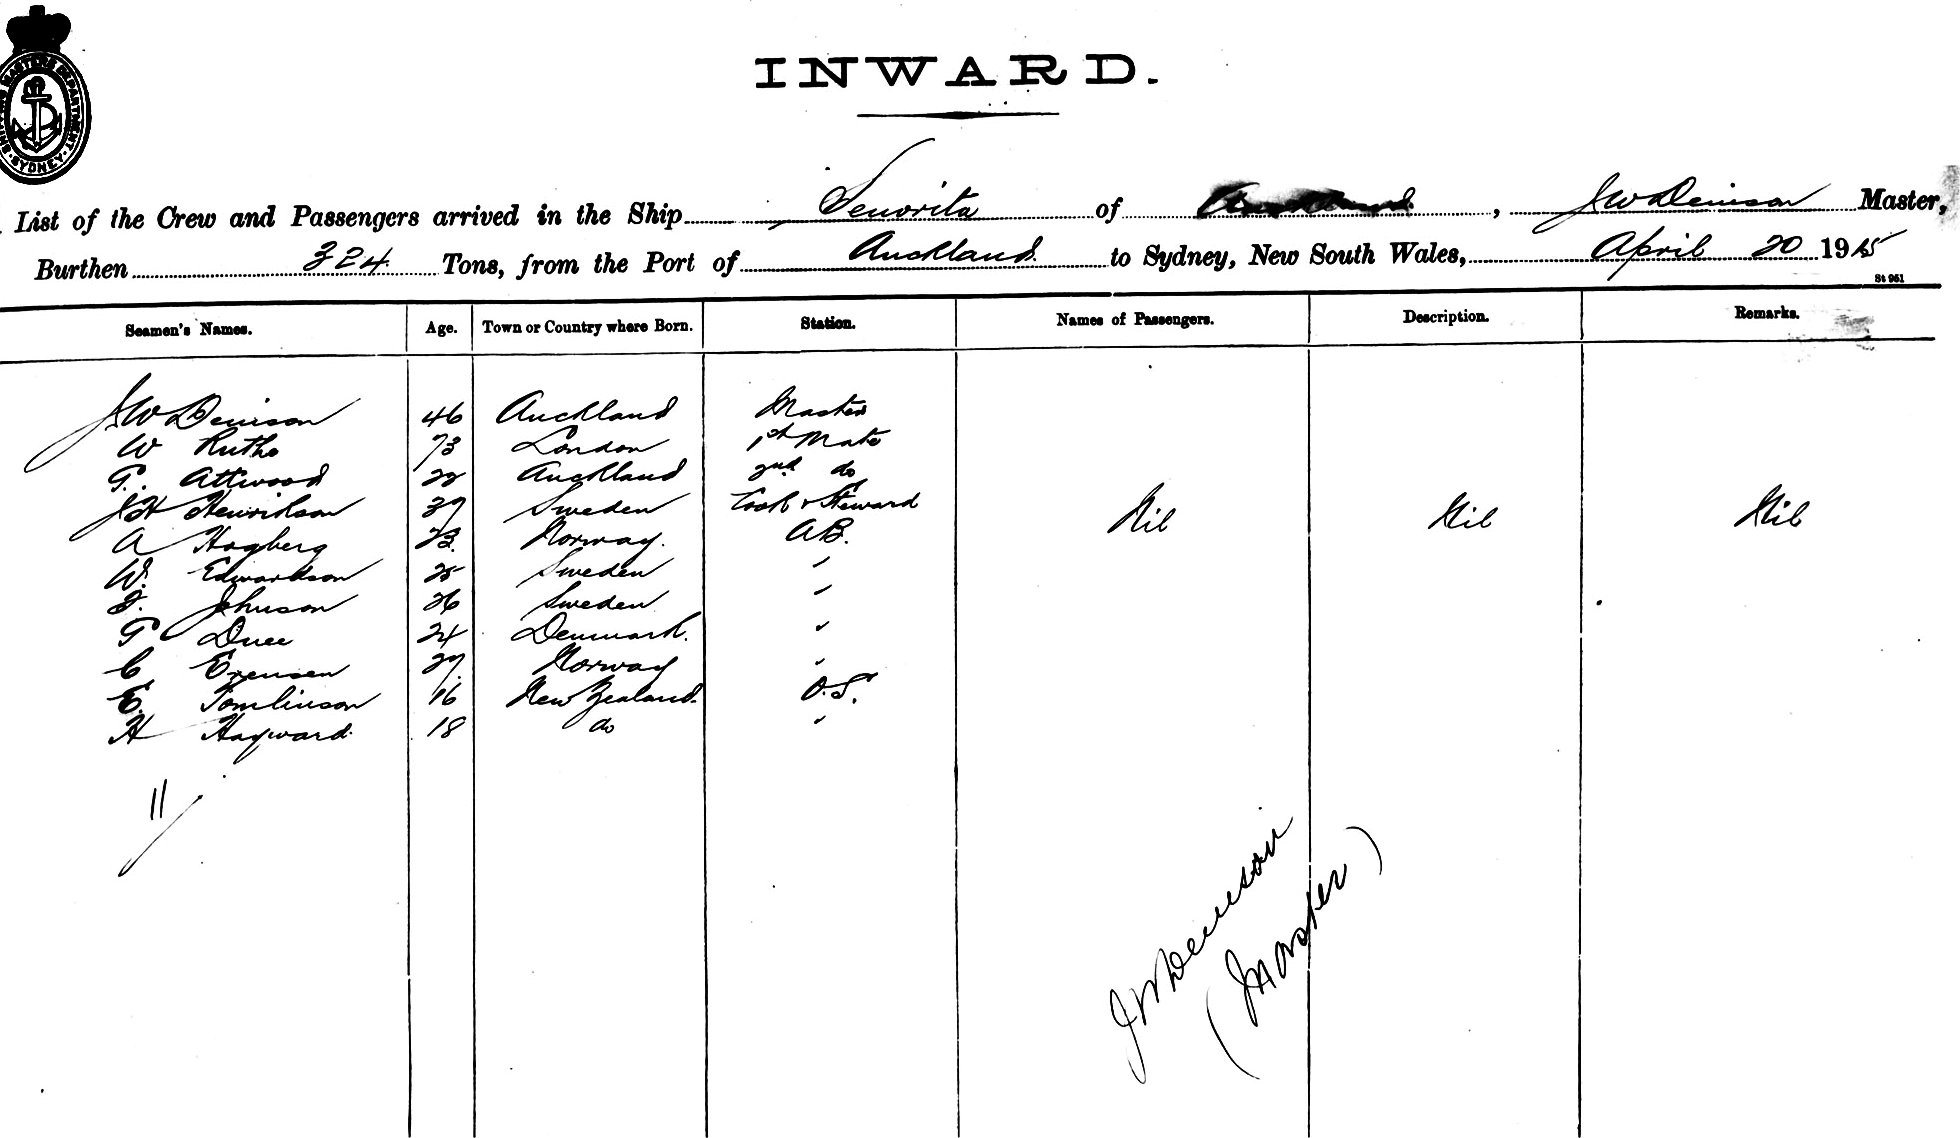 SHIPPING MASTERS DEPARTMENT
SYDNEY
INWARD.
List of the Crew and Passengers arrived in the Ship Senorita of Auckland, J W Denison Master,
Burthen 324 Tons, from the Port of Auckland to Sydney, New South Wales, April 20 1915
St 951
Seamen's Names. Age. Town or Country where Born. Station. Names of Passengers. Description. Remarks.
J W Denison 46 Auckland Master
W 73 London 1st Mate
G. Attwood 22 Auckland 2nd do
J H Henrikson 37 Sweden Cook & Steward Nil Nil Nil
A Hogberg 23. Norway. AB.
W. Edwardson 25 Sweden "
Johnson 26 Sweden "
G Duee 24 Denmark. "
C Evensen 27. Norway "
E. Tomlinson 16 New Zealand. O.S.
H Hayward. 18 do "
11
J W Denison
(Master)